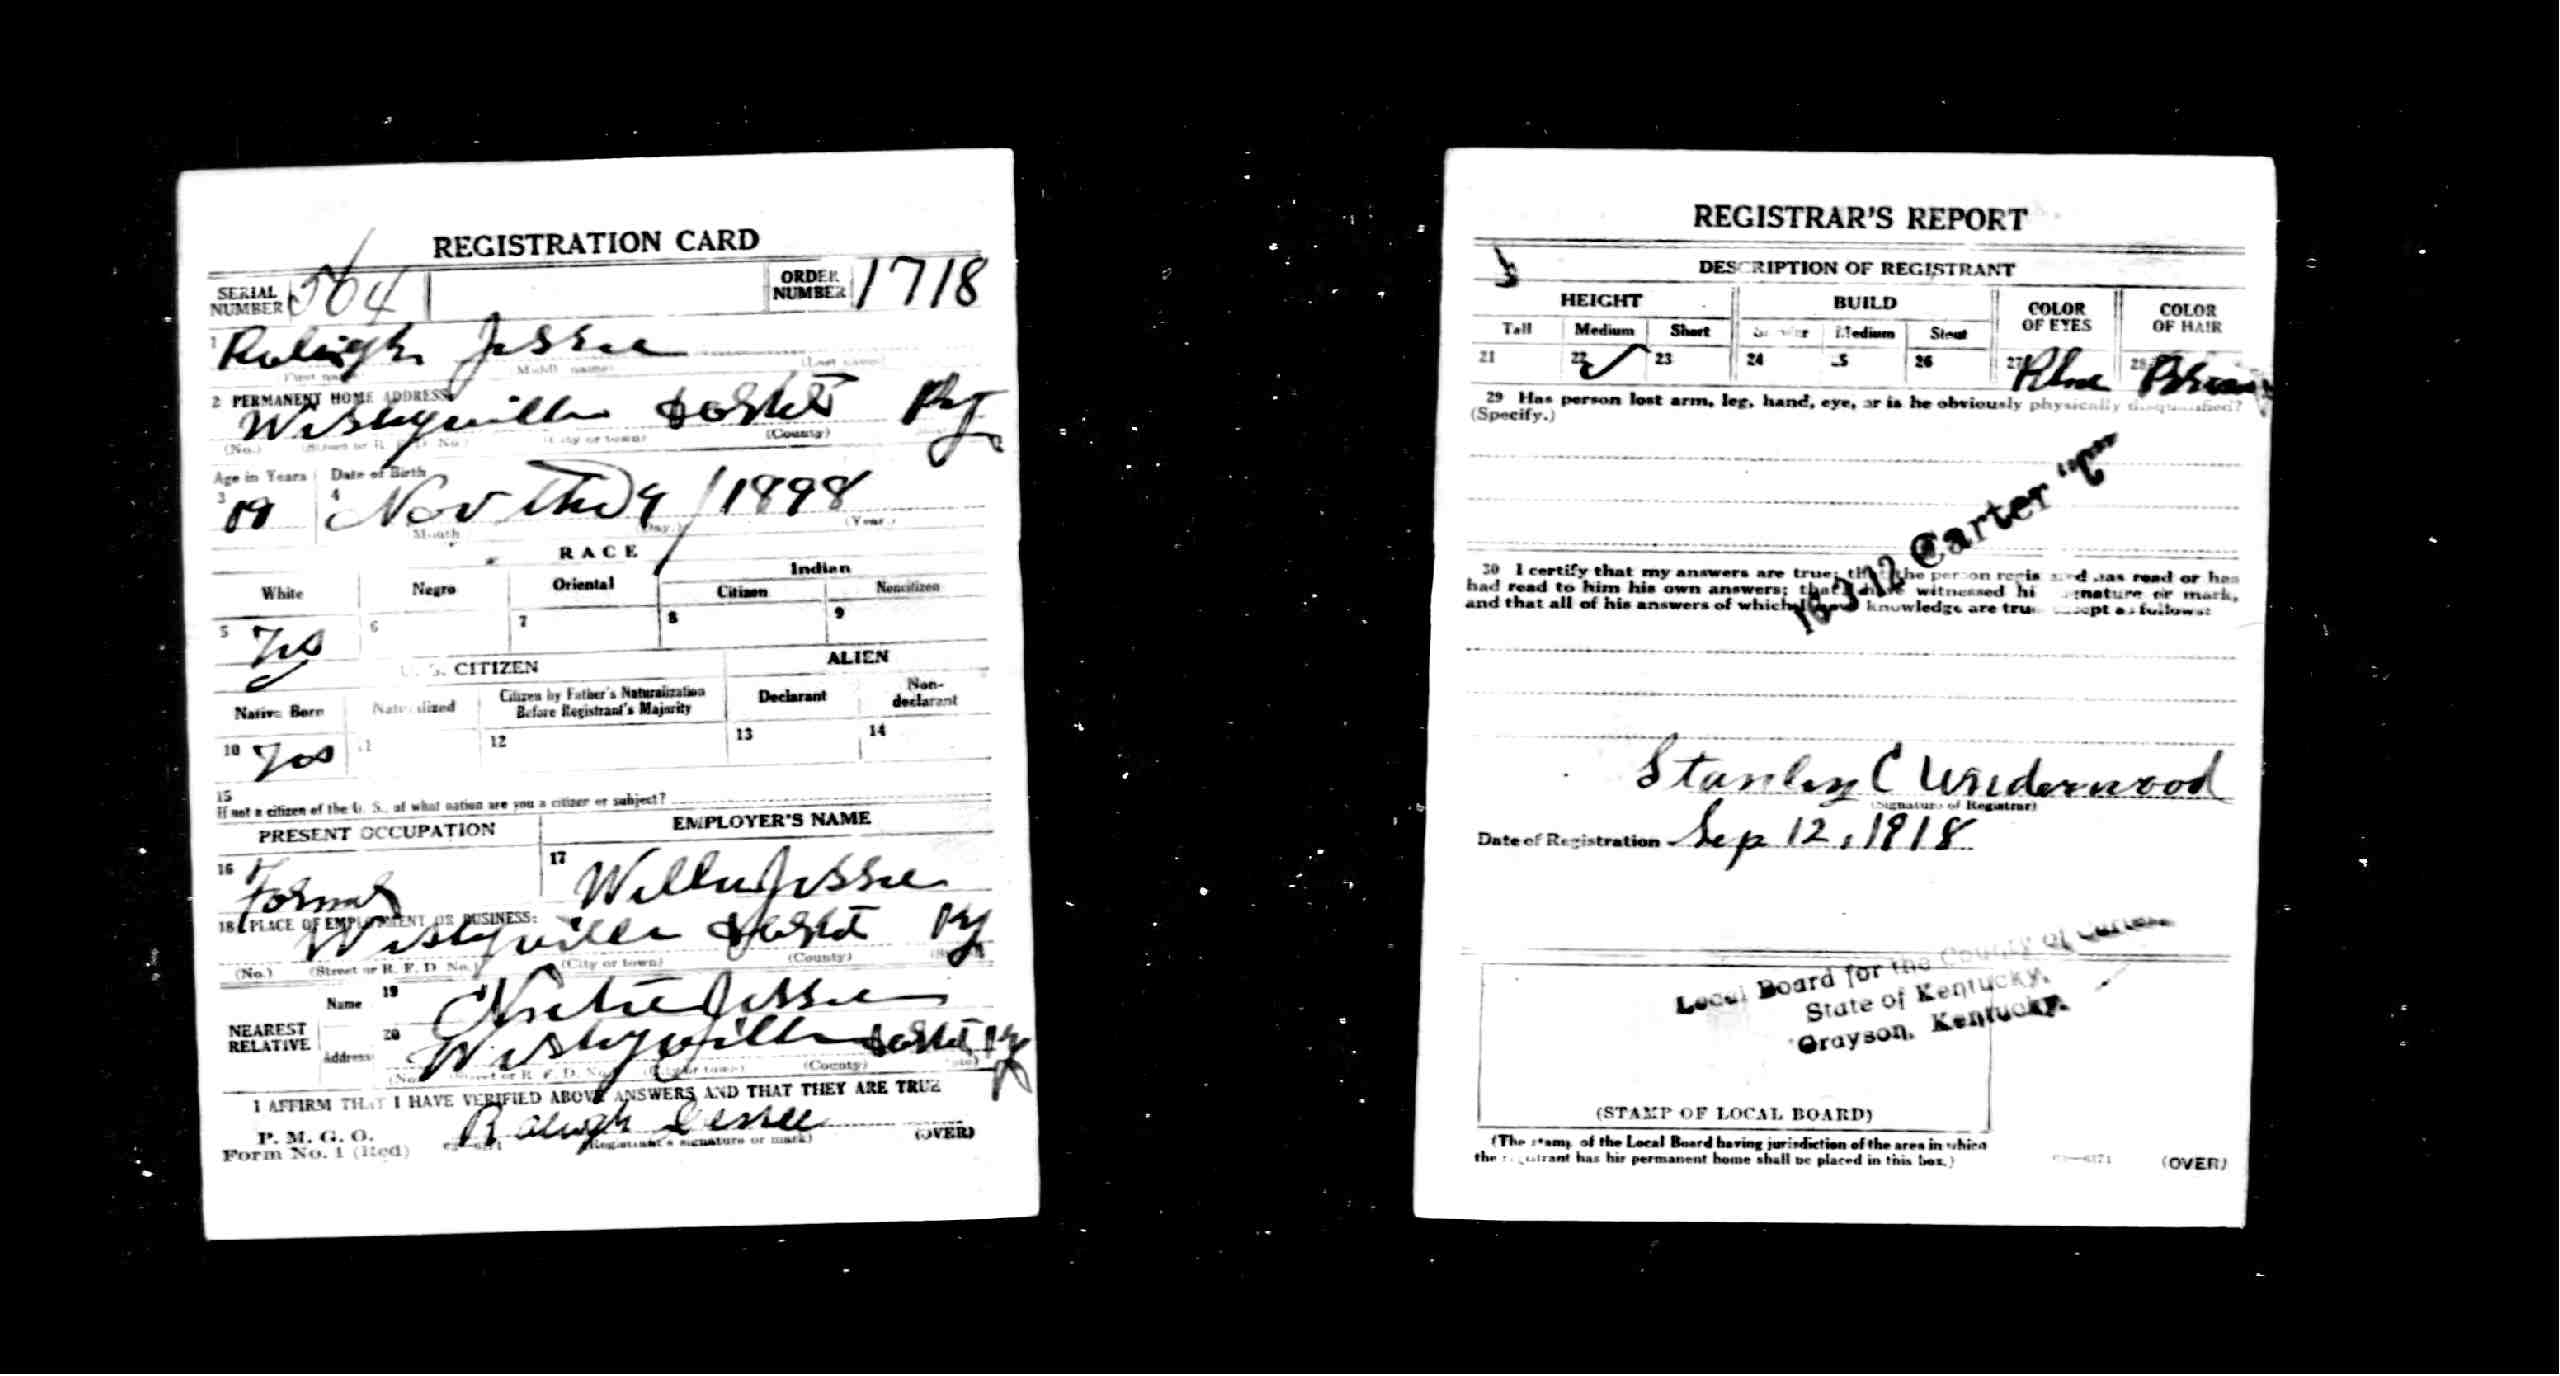 REGISTRATION CARD
SERIAL NUMBER 564 ORDER NUMBER 1718
1 Raleigh Jessee
(Last name)
First name Middle name
2 PERMANENT HOME ADDRESS
Wesleyville Ky
(No.) (Street or R. F. D. No.) (City or town) (County)
Age in Years Date of Birth
3 19 4 Nov 1898
Month (Day.) (Year.)
RACE
White Negro Oriental Indian
Citizen Noncitizen
5 Yes 6 7 8 9
U. S. CITIZEN ALIEN
Native Born Naturalized Citizen by Father's Naturalization Before Registrant's Majority Declarant Non-declarant
10 Yes 11 12 13 14
15
If not a citizen of the U. S., of what nation are you a citizen or subject?
PRESENT OCCUPATION EMPLOYER'S NAME
16 Farmer 17 Jessee
18 PLACE OF EMPLOYMENT OR BUSINESS:
Wesleyville Ky
(No.) (Street or R. F. D. No.) (City or town) (County)
NEAREST RELATIVE
Name 19 Jessee
Address 20 Wesleyville Ky
(No.) (Street or R. F. D. No.) (City or town) (County)
I AFFIRM THAT I HAVE VERIFIED ABOVE ANSWERS AND THAT THEY ARE TRUE
P. M. G. O.
Form No. 1 (Red) Raleigh Jessee
(Registrant's signature or mark) (OVER)
REGISTRAR'S REPORT
DESCRIPTION OF REGISTRANT
HEIGHT BUILD COLOR OF EYES COLOR OF HAIR
Tall Medium Short Slender Medium Stout
21 22 ✓ 23 24 25 26 27 Blue 28 Brown
29 Has person lost arm, leg, hand, eye, or is he obviously physically disqualified?
(Specify.)
16-3-12 Carter "C"
30 I certify that my answers are true; that the person registered has read or has
had read to him his own answers; that I have witnessed his signature or mark,
and that all of his answers of which I have knowledge are true, except as follows:
Stanley C Underwood
(Signature of Registrar)
Date of Registration Sep 12, 1918
Local Board for the County of Carter
State of Kentucky,
Grayson, Kentucky.
(STAMP OF LOCAL BOARD)
(The stamp of the Local Board having jurisdiction of the area in which
the registrant has his permanent home shall be placed in this box.)
(OVER)